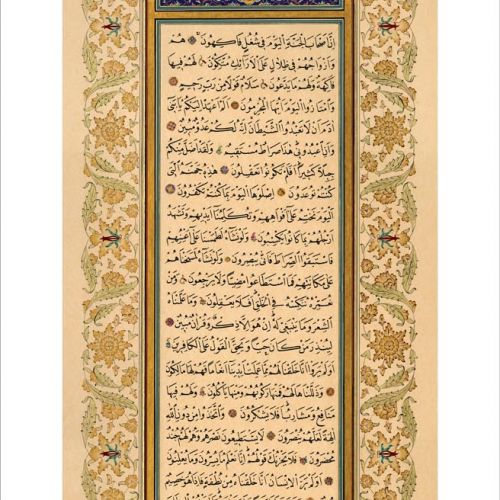 اِنَّ اَصْحَابَ الْجَنَّةِ الْيَوْمَ فِي شُغُلٍ فَاكِهُونَ هُمْ
وَاَزْوَاجُهُمْ فِي ظِلَالٍ عَلَى الْاَرَائِكِ مُتَّكِؤُنَ لَهُمْ فِيهَا
فَاكِهَةٌ وَلَهُمْ مَا يَدَّعُونَ سَلَامٌ قَوْلًا مِنْ رَبٍّ رَحِيمٍ
وَامْتَازُوا الْيَوْمَ اَيُّهَا الْمُجْرِمُونَ اَلَمْ اَعْهَدْ اِلَيْكُمْ يَا بَنِي
اٰدَمَ اَنْ لَا تَعْبُدُوا الشَّيْطَانَ اِنَّهُ لَكُمْ عَدُوٌّ مُبِينٌ
وَاَنِ اعْبُدُونِي هٰذَا صِرَاطٌ مُسْتَقِيمٌ وَلَقَدْ اَضَلَّ مِنْكُمْ
جِبِلًّا كَثِيرًا اَفَلَمْ تَكُونُوا تَعْقِلُونَ هٰذِهِ جَهَنَّمُ الَّتِي
كُنْتُمْ تُوعَدُونَ اِصْلَوْهَا الْيَوْمَ بِمَا كُنْتُمْ تَكْفُرُونَ
اَلْيَوْمَ نَخْتِمُ عَلَى اَفْوَاهِهِمْ وَتُكَلِّمُنَا اَيْدِيهِمْ وَتَشْهَدُ
اَرْجُلُهُمْ بِمَا كَانُوا يَكْسِبُونَ وَلَوْ نَشَاءُ لَطَمَسْنَا عَلَى اَعْيُنِهِمْ
فَاسْتَبَقُوا الصِّرَاطَ فَاَنّٰى يُبْصِرُونَ وَلَوْ نَشَاءُ لَمَسَخْنَاهُمْ
عَلَى مَكَانَتِهِمْ فَمَا اسْتَطَاعُوا مُضِيًّا وَلَا يَرْجِعُونَ وَمَنْ
نُعَمِّرْهُ نُنَكِّسْهُ فِي الْخَلْقِ اَفَلَا يَعْقِلُونَ وَمَا عَلَّمْنَاهُ
الشِّعْرَ وَمَا يَنْبَغِي لَهُ اِنْ هُوَ اِلَّا ذِكْرٌ وَقُرْاٰنٌ مُبِينٌ
لِيُنْذِرَ مَنْ كَانَ حَيًّا وَيَحِقَّ الْقَوْلُ عَلَى الْكَافِرِينَ
اَوَلَمْ يَرَوْا اَنَّا خَلَقْنَا لَهُمْ مِمَّا عَمِلَتْ اَيْدِينَا اَنْعَامًا فَهُمْ لَهَا مَالِكُونَ
وَذَلَّلْنَاهَا لَهُمْ فَمِنْهَا رَكُوبُهُمْ وَمِنْهَا يَأْكُلُونَ وَلَهُمْ فِيهَا
مَنَافِعُ وَمَشَارِبُ اَفَلَا يَشْكُرُونَ وَاتَّخَذُوا مِنْ دُونِ اللّٰهِ
اٰلِهَةً لَعَلَّهُمْ يُنْصَرُونَ لَا يَسْتَطِيعُونَ نَصْرَهُمْ وَهُمْ لَهُمْ جُنْدٌ
مُحْضَرُونَ فَلَا يَحْزُنْكَ قَوْلُهُمْ اِنَّا نَعْلَمُ مَا يُسِرُّونَ وَمَا يُعْلِنُونَ
اَوَلَمْ يَرَ الْاِنْسَانُ اَنَّا خَلَقْنَاهُ مِنْ نُطْفَةٍ فَاِذَا هُوَ